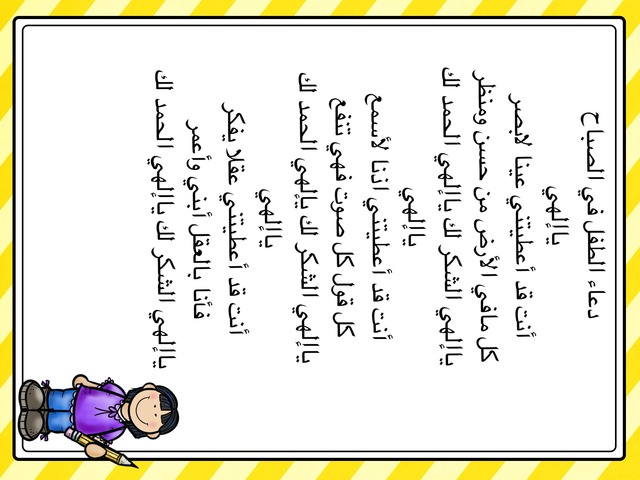 دعاء الطفل في الصباح
ياإلهي
أنت قد أعطيتني عينا لابصر
كل مافي الأرض من حسن ومنظر
ياإلهي الشكر لك ياإلهي الحمد لك
ياإلهي
أنت قد أعطيتني اننا لأسمع
كل قول كل صوت فهي تنفع
ياإلهي الشكر لك ياإلهي الحمد لك
ياإلهي
أنت قد أعطيتني عقلا يفكر
فأنا بالعقل أبني وأعمر
ياإلهي الشكر لك ياإلهي الحمد لك